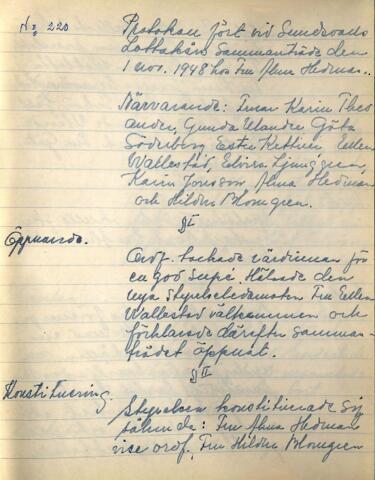 № 220
Protokoll fört vid Sundsvalls
Lottakårs sammanträde den
1 nov. 1948 hos Fru Alma Hedman.
Närvarande: Fruar Karin Theo
ander, Gunda Ulander Göta
Söderberg Ester Kettner Ellen
Wallestad, Elvira Ljunggren,
Karin Jonsson, Alma Hedman
och Hildur Blomgren.
§ I
Öppnande.
Ordf. tackade värdinnan för
en god supé. Hälsade den
nya styrelseledamoten Fru Ellen
Wallestad välkommen och
förklarade därefter samman-
trädet öppnat.
§ II
Konstituering.
Styrelsen konstituerade sig
sålunda: Fru Alma Hedman
vise ordf, Fru Hildur Blomgren